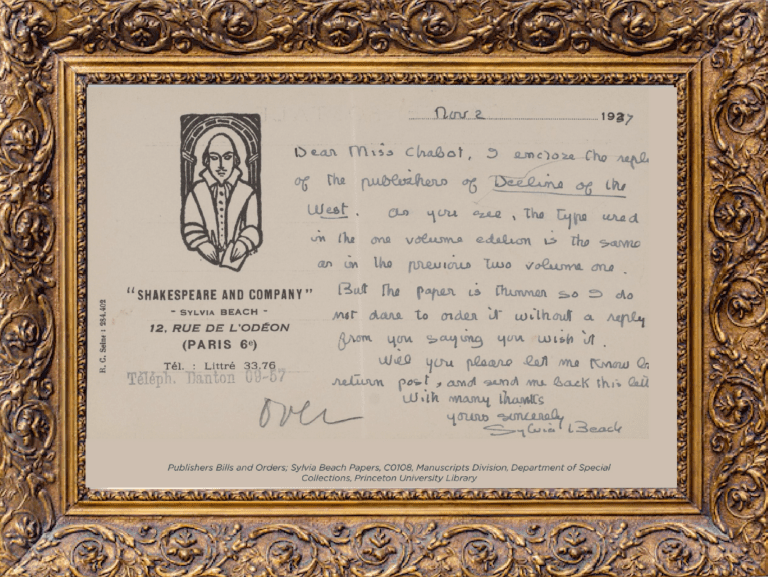 Nov 2 1937
Dear Miss Chabot, I enclose the repl
of the publishers of Decline of the
West. As you see, the type used
in the one volume edition is the same
as in the previous two volume one.
But the paper is thinner so I do
not dare to order it without a reply
from you saying you wish it.
Will you please let me know b
return post, and send me back this lett
With many thanks
yours sincerely
Sylvia Beach
"SHAKESPEARE AND COMPANY"
- SYLVIA BEACH -
12, RUE DE L'ODÉON
(PARIS 6e)
Tél. : Littré 33.76
Téléph. Danton 09-57
R. C. Seine : 284.402
over
Publishers Bills and Orders; Sylvia Beach Papers, C0108, Manuscripts Division, Department of Special
Collections, Princeton University Library